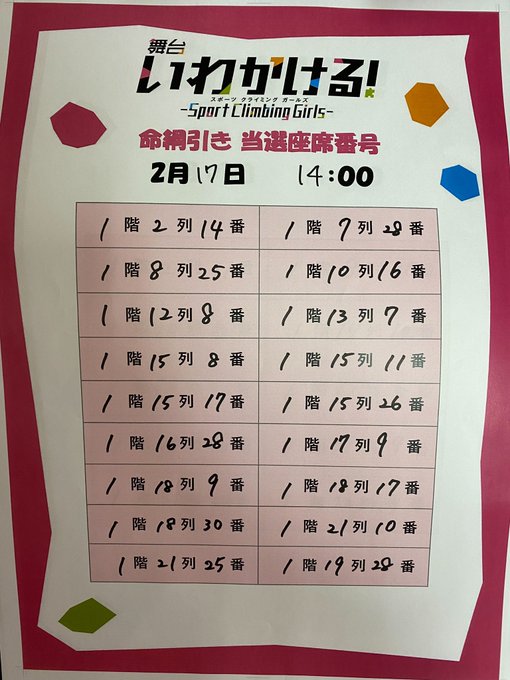 舞台
いわかける!
スポーツ クライミング ガールズ
-Sport Climbing Girls-
命綱引き 当選座席番号
2月17日 14:00
1階2列14番 1階7列28番
1階8列25番 1階10列16番
1階12列8番 1階13列7番
1階15列8番 1階15列11番
1階15列17番 1階15列26番
1階16列28番 1階17列9番
1階18列9番 1階18列17番
1階18列30番 1階21列10番
1階21列25番 1階19列28番